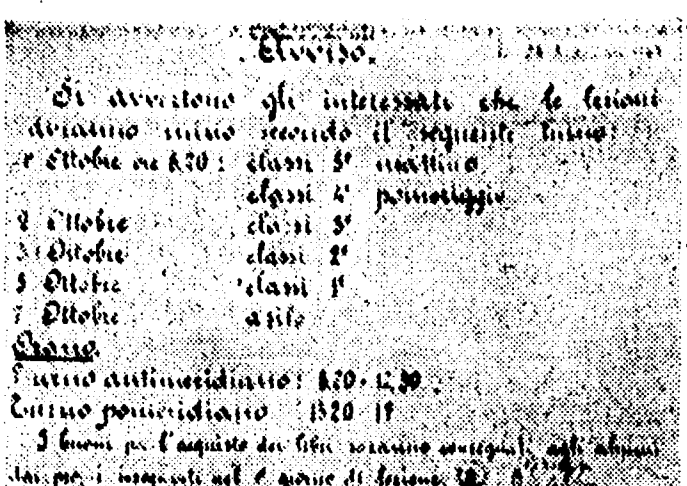 Avviso.
Si avvertono gli interessati che le lezioni
avranno inizio secondo il seguente turno:
1° Ottobre ore 8.20: classi 5ª mattino
classi 4ª pomeriggio
2 Ottobre classi 3ª
3 Ottobre classi 2ª
5 Ottobre classi 1ª
7 Ottobre asilo
Orario.
Turno antimeridiano: 8.20 - 12,30
Turno pomeridiano 13.20 19
I buoni per l'acquisto dei libri saranno consegnati agli alunni
dai insegnanti nel giorno di lezione